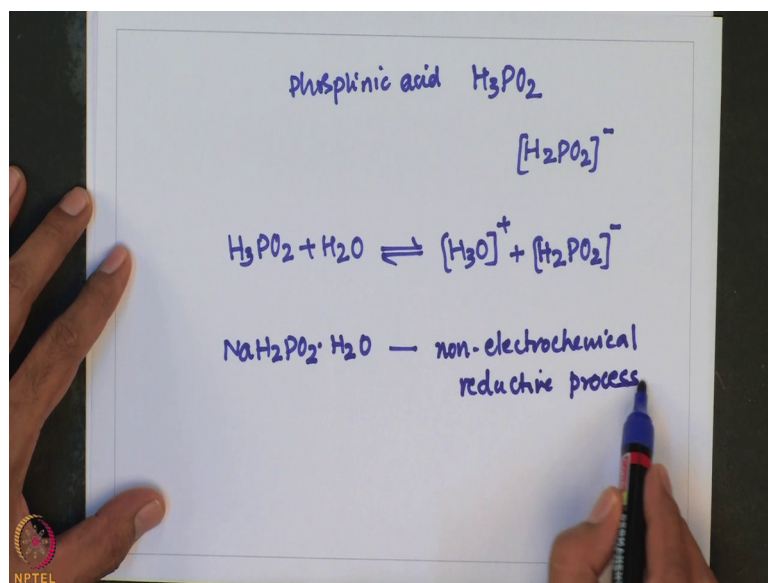 Phosphinic acid H₃PO₂
[H₂PO₂]⁻
H₃PO₂ + H₂O ⇌ [H₃O]⁺ + [H₂PO₂]⁻
NaH₂PO₂·H₂O — non-electrochemical
reductive process
NPTEL